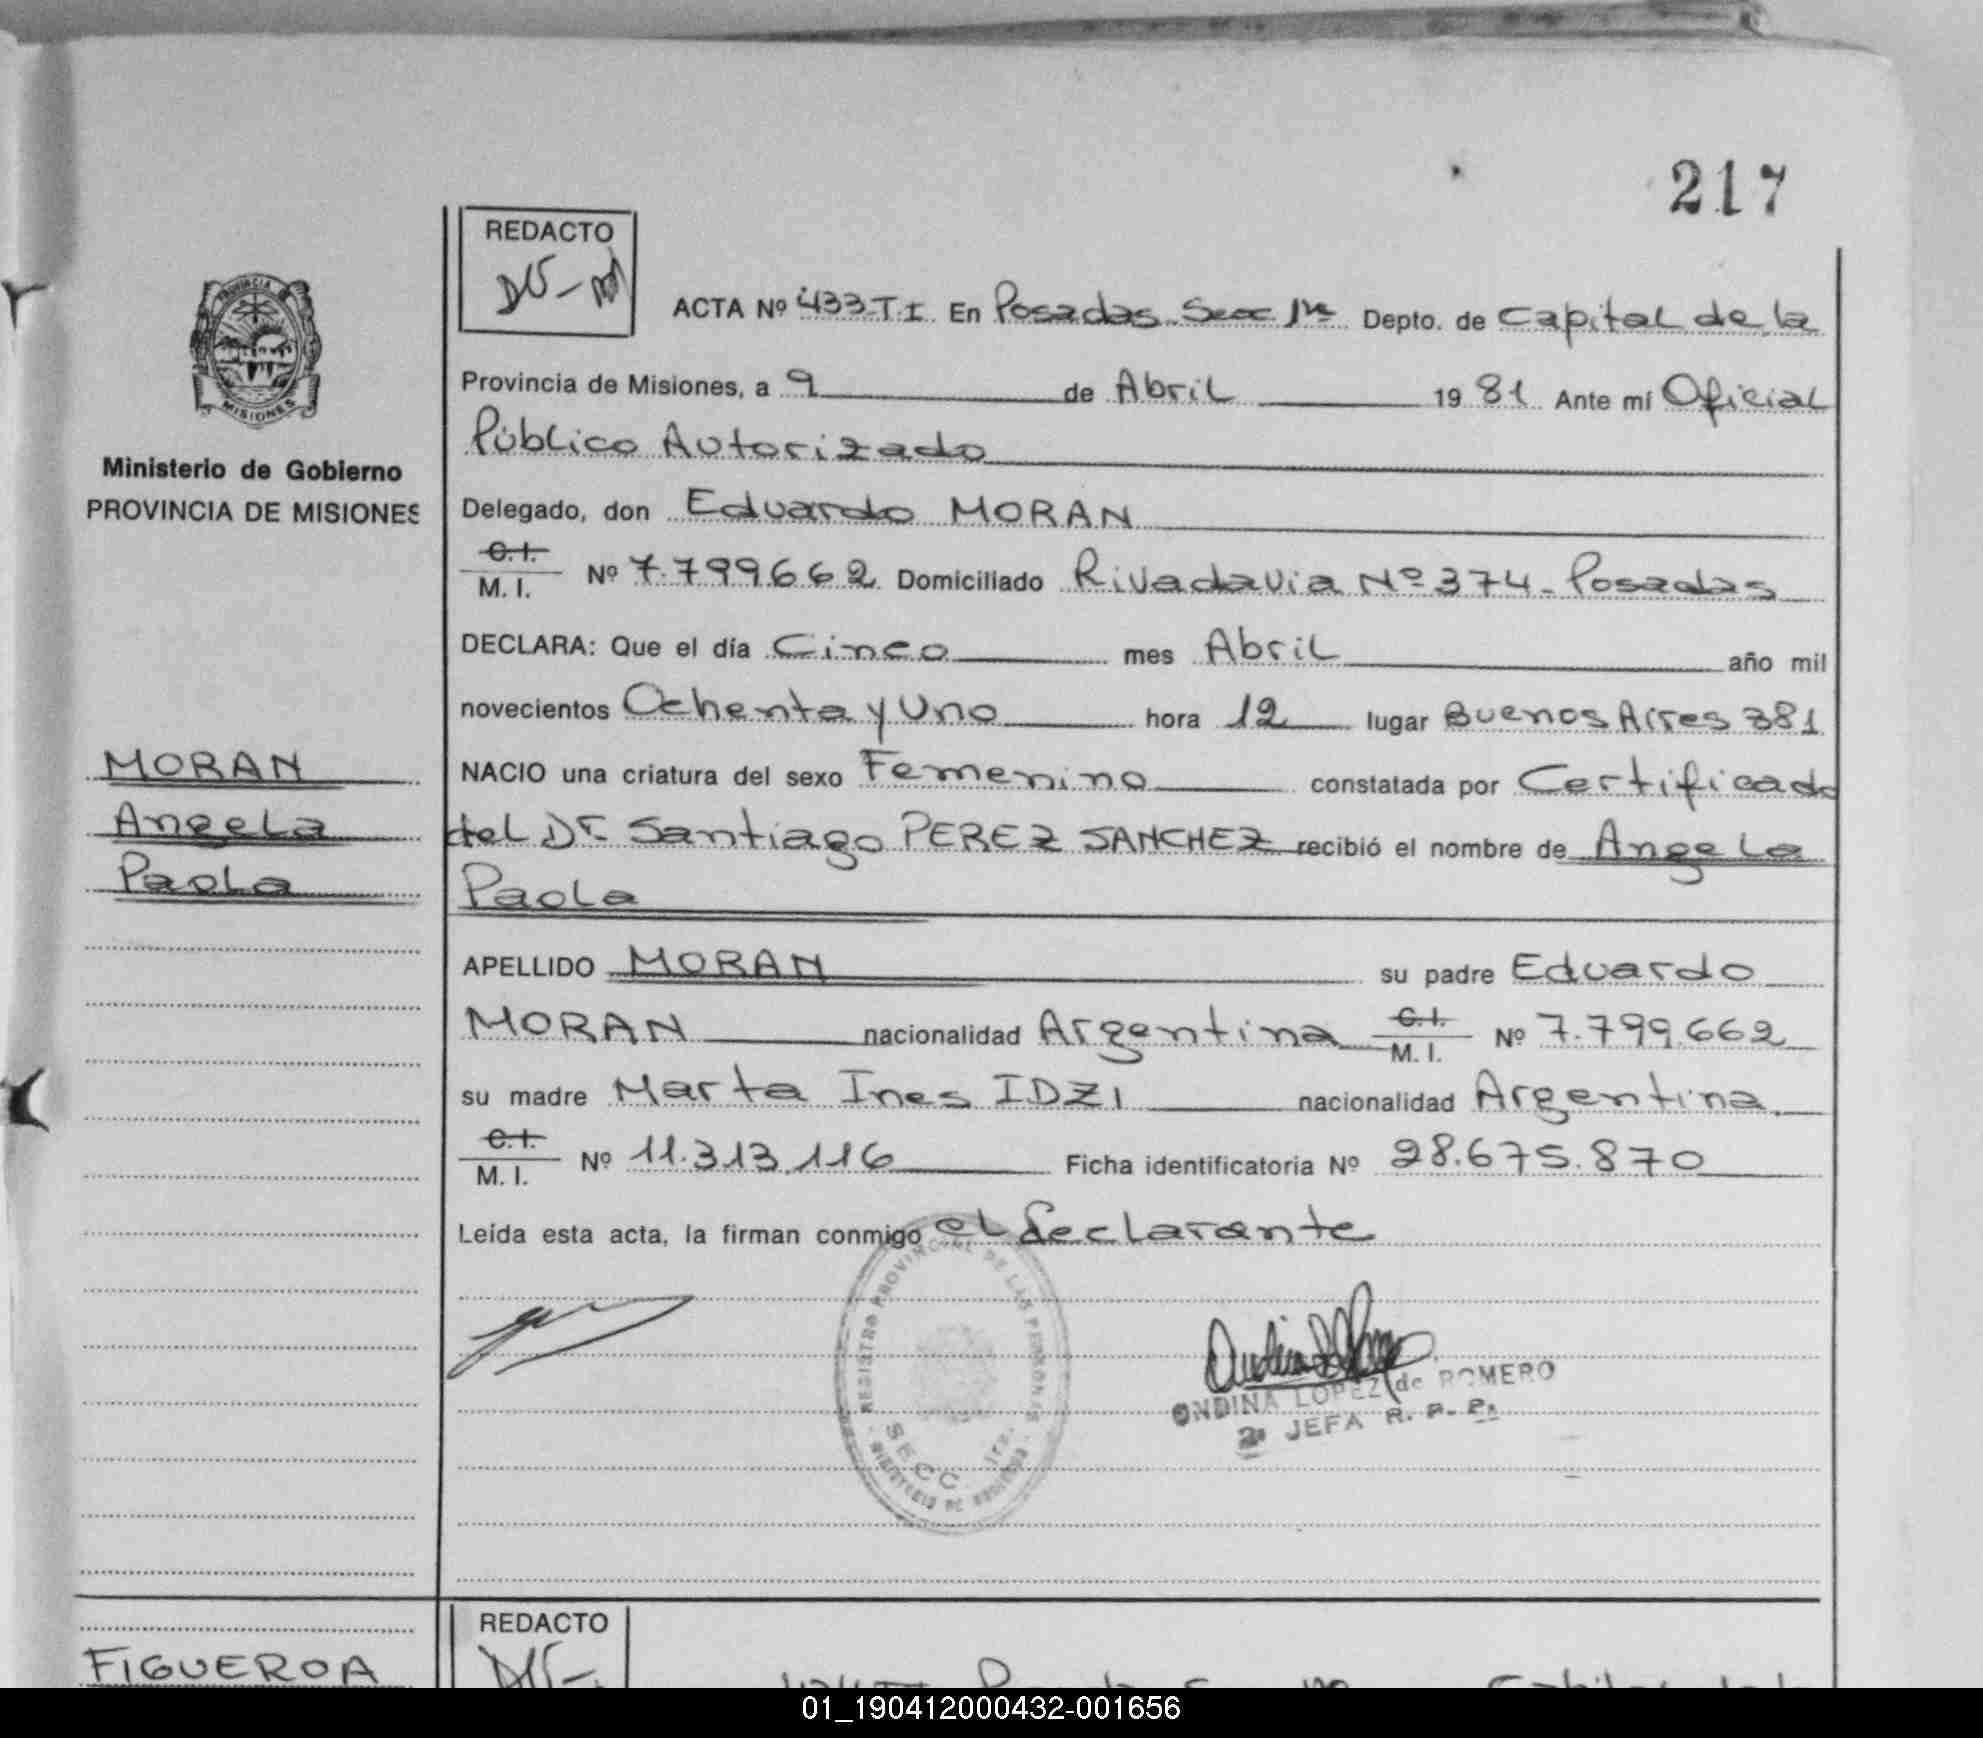 217
REDACTO
PROVINCIA DE
MISIONES
ACTA Nº 433-T I En Posadas Secc 1ra Depto. de Capital de la
Provincia de Misiones, a 9 de Abril 1981 Ante mí Oficial
Público Autorizado
Ministerio de Gobierno
PROVINCIA DE MISIONES
Delegado, don Eduardo MORAN
C.I. M.I. Nº 7.799662 Domiciliado Rivadavia Nº 374 - Posadas
DECLARA: Que el día Cinco mes Abril año mil
novecientos Ochenta y Uno hora 12 lugar Buenos Aires 381
MORAN
Angela
Paola
NACIO una criatura del sexo Femenino constatada por Certificado
del Dr. Santiago PEREZ SANCHEZ recibió el nombre de Angela
Paola
APELLIDO MORAN su padre Eduardo
MORAN nacionalidad Argentina C.I. M.I. Nº 7.799.662
su madre Marta Ines IDZI nacionalidad Argentina
C.I. M.I. Nº 11.313.116 Ficha identificatoria Nº 28.675.870
Leída esta acta, la firman conmigo el declarante
REGISTRO PROVINCIAL DE LAS PERSONAS
SECC. 1ra.
MINISTERIO DE GOBIERNO
ONDINA LOPEZ de ROMERO
2ª JEFA R. P. P.
REDACTO
FIGUEROA
01_190412000432-001656